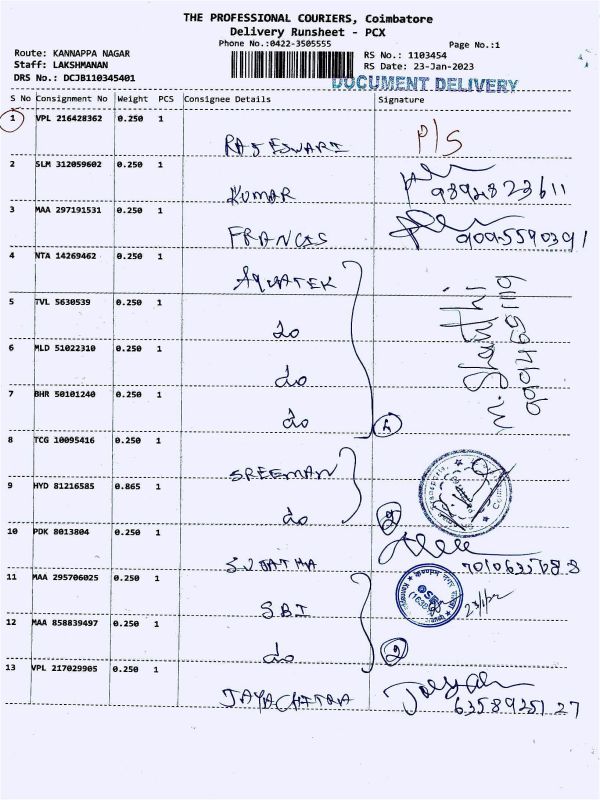 THE PROFESSIONAL COURIERS, Coimbatore
Delivery Runsheet - PCX
Phone No.:0422-3505555
Page No.:1
Route: KANNAPPA NAGAR
Staff: LAKSHMANAN
DRS No.: DCJB110345401
RS No.: 1103454
RS Date: 23-Jan-2023
DOCUMENT DELIVERY
S No Consignment No Weight PCS Consignee Details Signature
1 VPL 216428362 0.250 1
RAJESWARI P/S
2 SLM 312059602 0.250 1
KUMAR 9894823611
3 MAA 297191531 0.250 1
FRANCIS 9095590391
4 NTA 14269462 0.250 1
AQUATEK
5 TVL 5630539 0.250 1
do
6 MLD 51022310 0.250 1
do
7 BHR 50101240 0.250 1
do 4
8 TCG 10095416 0.250 1
SREEMAN
9 HYD 81216585 0.865 1
do 2
10 PDK 8013804 0.250 1
SUJATHA
11 MAA 295706025 0.250 1
SBI
12 MAA 858839497 0.250 1
do 2
13 VPL 217029905 0.250 1
JAYACHITRA 6358925127